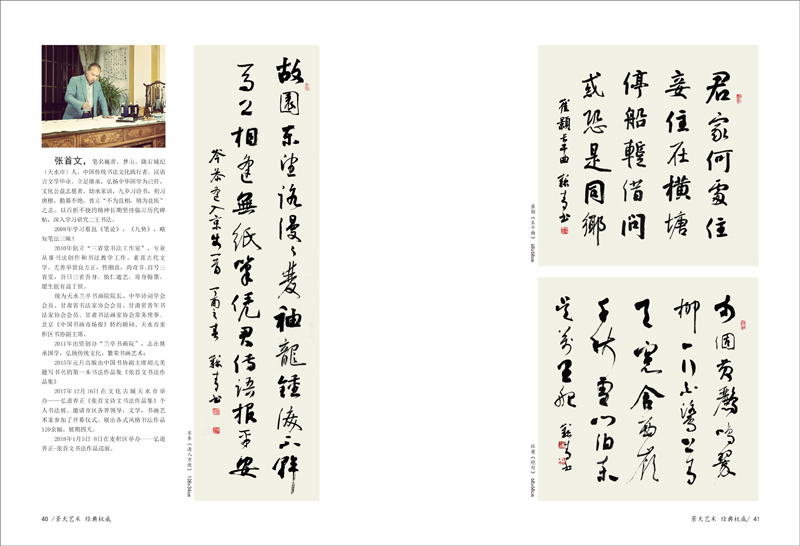 张首文，笔名巍甫、梦山。陇右城纪
（天水市）人。中国传统书法文化践行者。汉语
言文学毕业。立足继承，弘扬中华国学为己任。
文化公益志愿者。幼承家训，九岁习诗书，初习
唐楷，勤摹不绝，曾立“不为良相，则为良医”
之志。以百折不挠的精神长期坚持临习历代碑
帖，深入学习研究二王书法。
2008年学习蔡邕《笔论》，《九势》，略
知笔法三昧！
2010年创立“三省堂书法工作室”，专业
从事书法创作和书法教学工作。素喜古代文
学。尤善举贤良方正，性刚直，尚奇节。自号三
省堂，吾日三省吾身。依仁游艺，寄身翰墨。
愿生能有益于世。
现为天水兰亭书画院院长。中华诗词学会
会员、甘肃省书法家协会会员、甘肃省青年书
法家协会会员、甘肃书法画家协会常务理事、
北京《中国书画市场报》特约顾问、天水市麦
积区书协副主席。
2011年出资创办“兰亭书画院”，志在继
承国学，弘扬传统文化，繁荣书画艺术；
2015年元月出版由中国书协副主席胡抗美
题写书名的第一本书法作品集《张首文书法作
品集》
2017年12月16日在文化古城天水市举
办——弘道养正《张首文诗文书法作品集》个
人书法展。邀请市区各界领导，文学、书画艺
术家参加了开幕仪式。展出各式风格书法作品
120余幅。展期四天。
2018年1月5日-8日在麦积区举办——弘道
养正-张首文书法作品巡展。
故園東望路漫漫雙袖龍鍾淚不乾
馬上相逢無紙筆憑君傳語報平安
岑參逢入京使一首 丁酉之春
岑参《逢入京使》138x34cm
君家何處住
妾住在橫塘
停船暫借問
或恐是同鄉
崔顥長干曲
崔颢《长干曲》68x68cm
兩個黃鸝鳴翠
柳一行白鷺上青
天窗含西嶺
千秋雪門泊東
吳萬里船
杜甫《绝句》68x68cm
40 /景天艺术 经典权威
景天艺术 经典权威/ 41